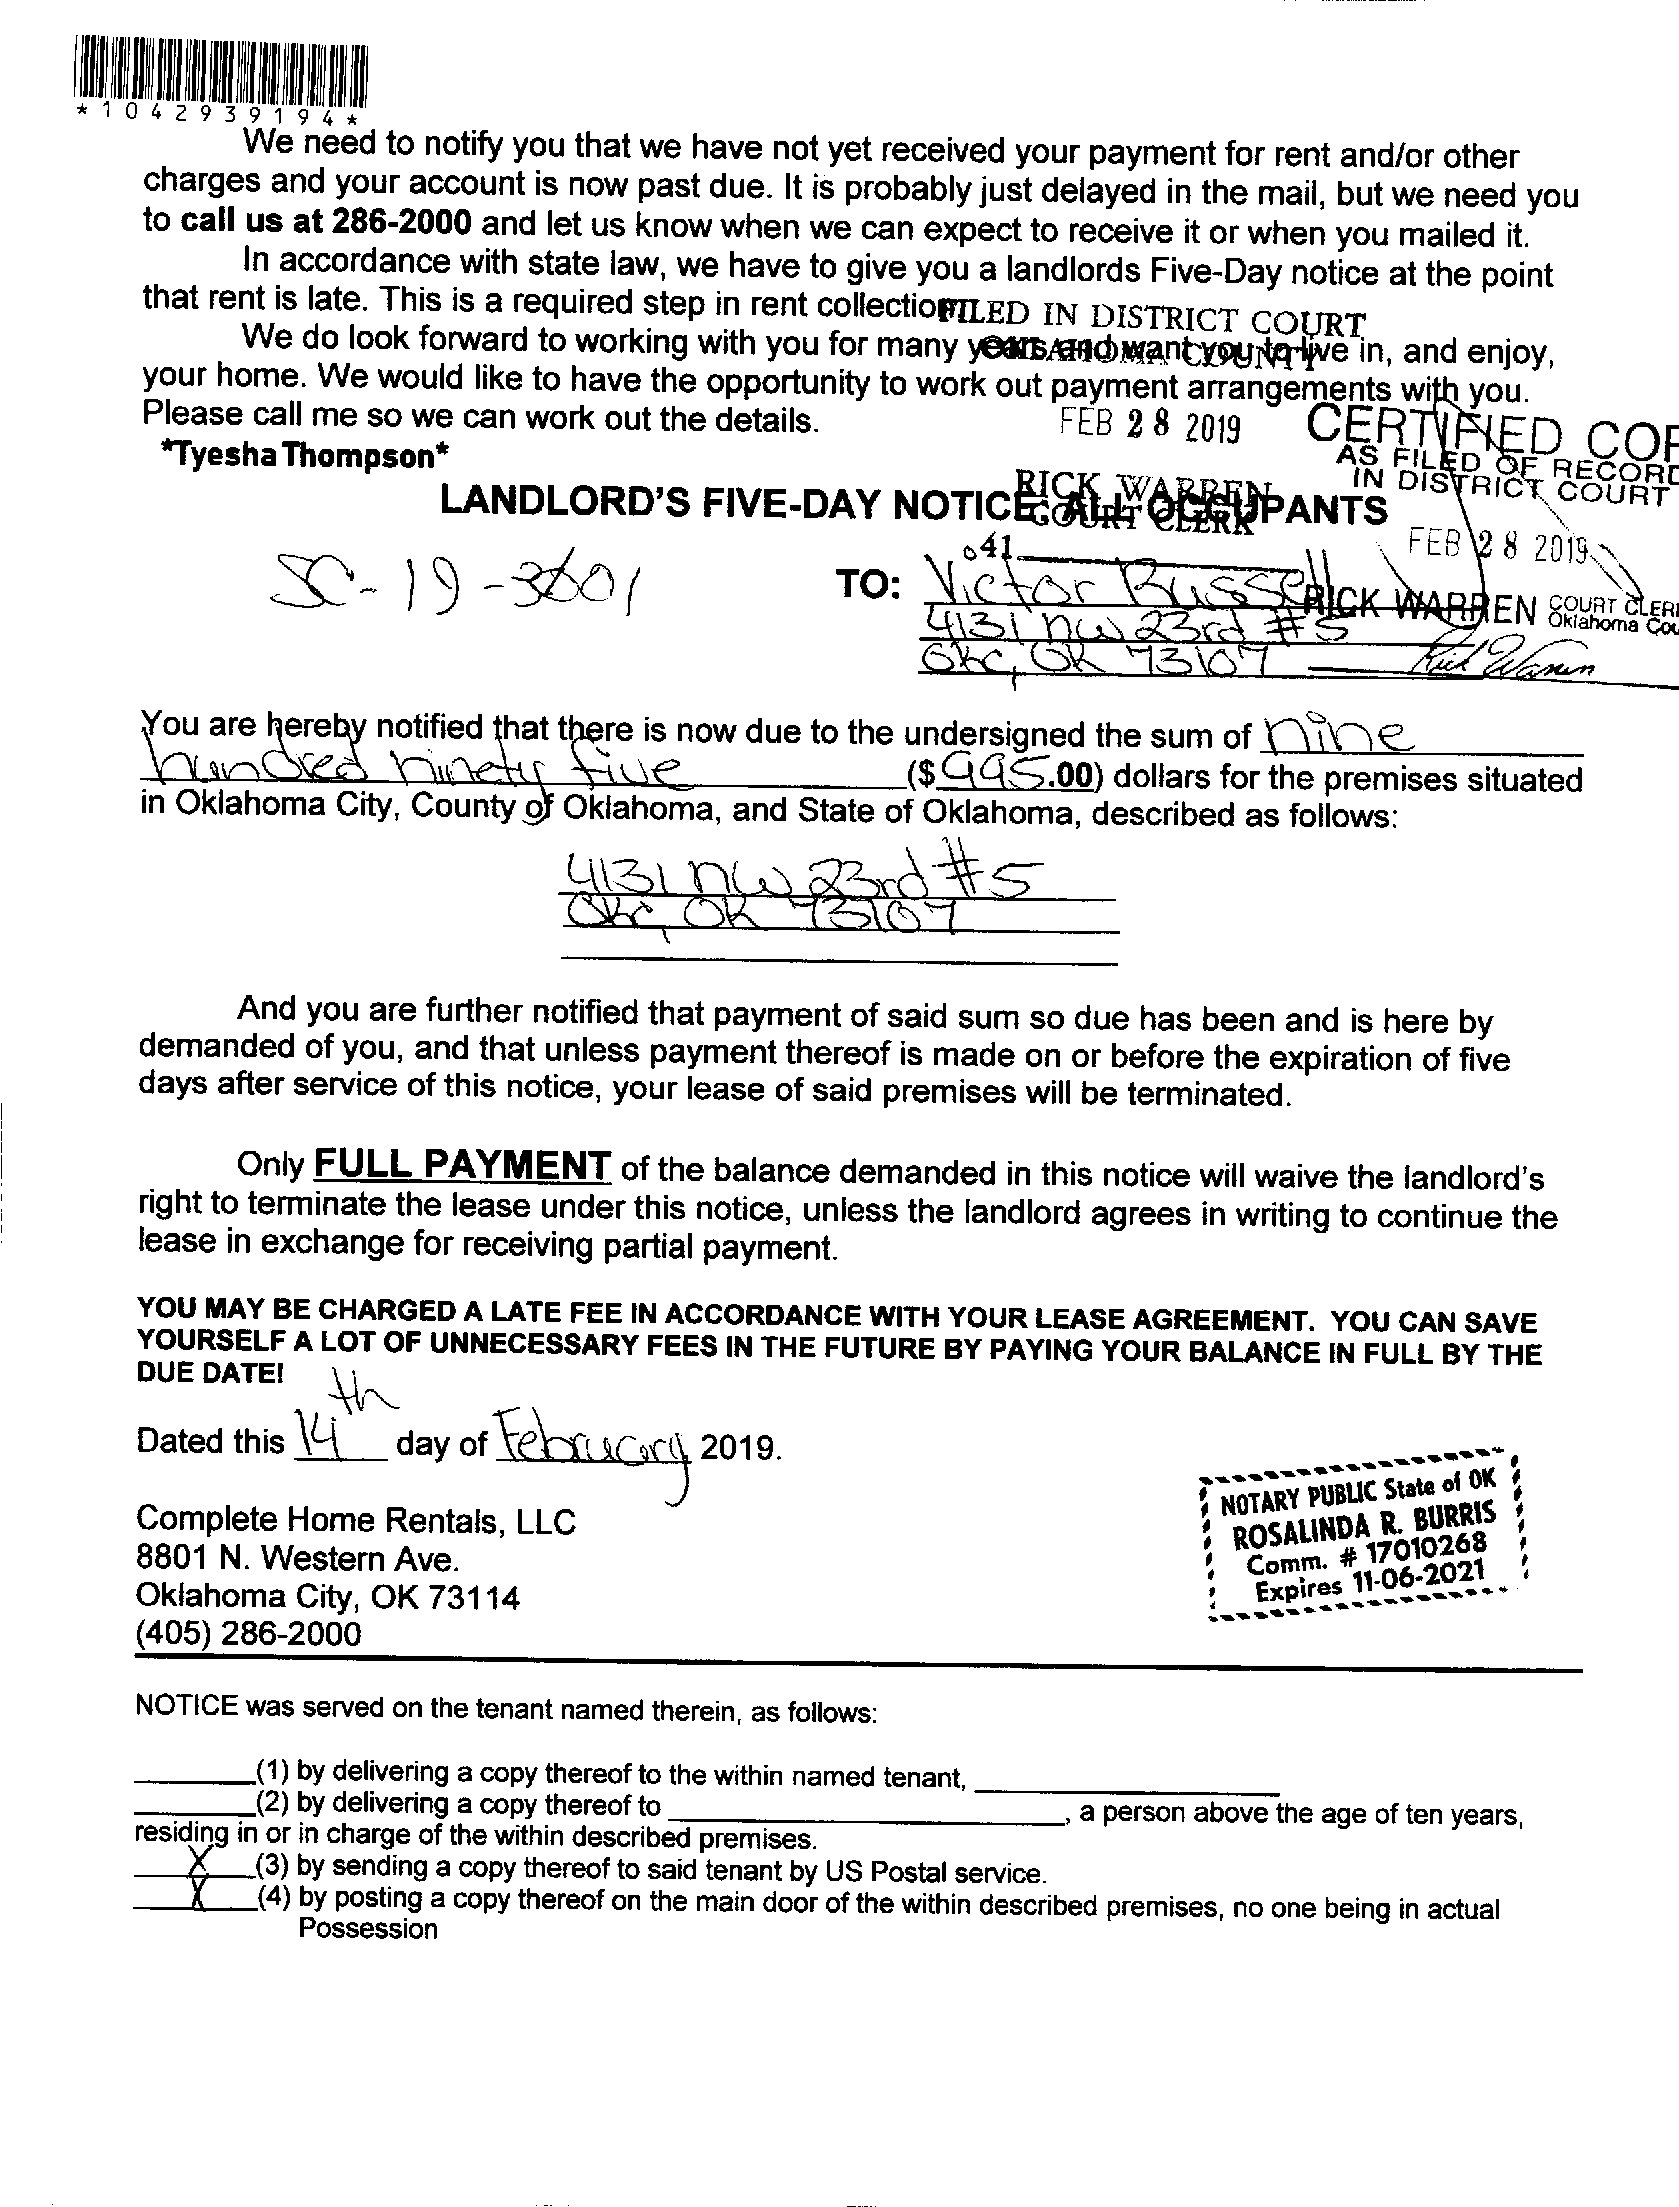 *1042939194*
We need to notify you that we have not yet received your payment for rent and/or other
charges and your account is now past due. It is probably just delayed in the mail, but we need you
to call us at 286-2000 and let us know when we can expect to receive it or when you mailed it.
In accordance with state law, we have to give you a landlords Five-Day notice at the point
that rent is late. This is a required step in rent collection
FILED IN DISTRICT COURT
OKLAHOMA COUNTY
We do look forward to working with you for many years and want you to live in, and enjoy,
your home. We would like to have the opportunity to work out payment arrangements with you.
Please call me so we can work out the details.
FEB 28 2019
CERTIFIED COP
AS FILED OF RECORD
IN DISTRICT COURT
*Tyesha Thompson*
RICK WARREN
COURT CLERK
LANDLORD'S FIVE-DAY NOTICE: ALL OCCUPANTS
FEB 28 2019
41
SC-19-3601
TO: Victor Russell
RICK WARREN COURT CLERK
Oklahoma Cou
4131 nw 23rd #5
OKC, OK 73107
Rick Warren
You are hereby notified that there is now due to the undersigned the sum of nine
hundred ninety five ($995.00) dollars for the premises situated
in Oklahoma City, County of Oklahoma, and State of Oklahoma, described as follows:
4131 nw 23rd #5
OKC, OK 73107
And you are further notified that payment of said sum so due has been and is here by
demanded of you, and that unless payment thereof is made on or before the expiration of five
days after service of this notice, your lease of said premises will be terminated.
Only FULL PAYMENT of the balance demanded in this notice will waive the landlord's
right to terminate the lease under this notice, unless the landlord agrees in writing to continue the
lease in exchange for receiving partial payment.
YOU MAY BE CHARGED A LATE FEE IN ACCORDANCE WITH YOUR LEASE AGREEMENT. YOU CAN SAVE
YOURSELF A LOT OF UNNECESSARY FEES IN THE FUTURE BY PAYING YOUR BALANCE IN FULL BY THE
DUE DATE!
Dated this 14th day of February 2019.
Complete Home Rentals, LLC
8801 N. Western Ave.
Oklahoma City, OK 73114
(405) 286-2000
NOTARY PUBLIC State of OK
ROSALINDA R. BURRIS
Comm. # 17010268
Expires 11-06-2021
NOTICE was served on the tenant named therein, as follows:
(1) by delivering a copy thereof to the within named tenant,
(2) by delivering a copy thereof to , a person above the age of ten years,
residing in or in charge of the within described premises.
X (3) by sending a copy thereof to said tenant by US Postal service.
X (4) by posting a copy thereof on the main door of the within described premises, no one being in actual
Possession